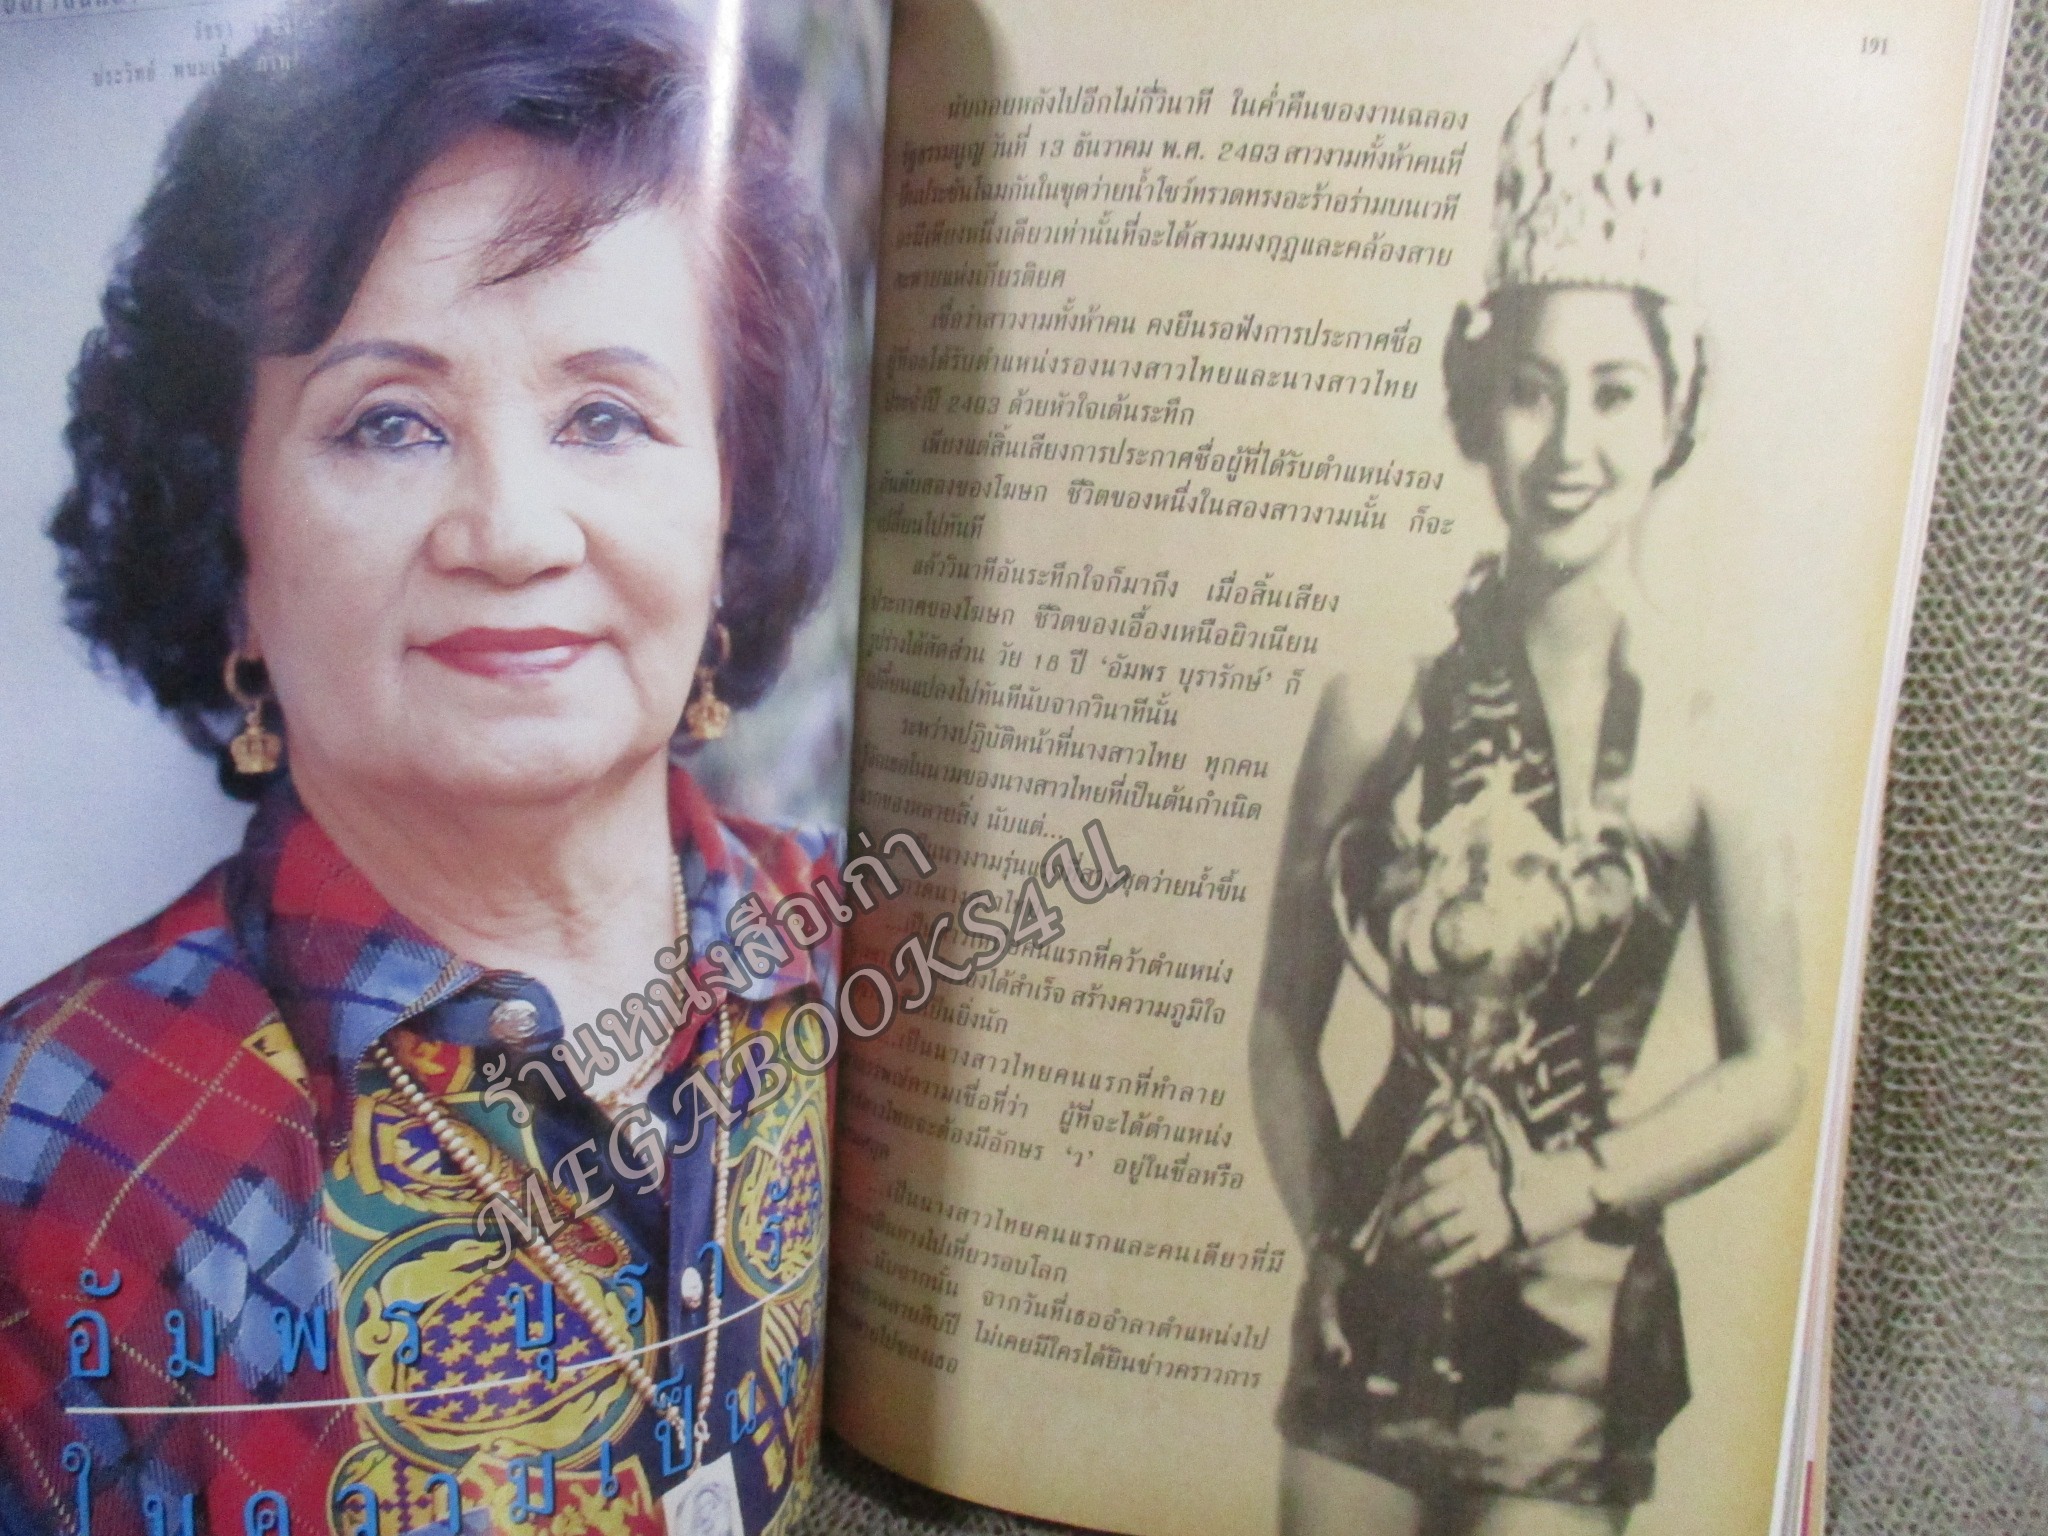 ประวิทย์
อัมพร บุราร
ในความเป็น
191
นับถอยหลังไปอีกไม่กี่วินาที ในค่ำคืนของงานฉลอง
รัฐธรรมนูญ วันที่ 13 ธันวาคม พ.ศ. 2493 สาวงามทั้งห้าคนที่
ยืนประชันโฉมกันในชุดว่ายน้ำโชว์ทรวดทรงอะร้าอร่ามบนเวที
จะมีเพียงหนึ่งเดียวเท่านั้นที่จะได้สวมมงกุฎและคล้องสาย
สะพายแห่งเกียรติยศ
เชื่อว่าสาวงามทั้งห้าคน คงยืนรอฟังการประกาศชื่อ
ผู้ที่จะได้รับตำแหน่งรองนางสาวไทยและนางสาวไทย
ประจำปี 2493 ด้วยหัวใจเต้นระทึก
เพียงแต่สิ้นเสียงการประกาศชื่อผู้ที่ได้รับตำแหน่งรอง
อันดับสองของโฆษก ชีวิตของหนึ่งในสองสาวงามนั้น ก็จะ
เปลี่ยนไปทันที
แล้ววินาทีอันระทึกใจก็มาถึง เมื่อสิ้นเสียง
ประกาศของโฆษก ชีวิตของเอื้องเหนือผิวเนียน
รูปร่างได้สัดส่วน วัย 18 ปี ‘อัมพร บุรารักษ์’ ก็
เปลี่ยนแปลงไปทันทีนับจากวินาทีนั้น
ระหว่างปฏิบัติหน้าที่นางสาวไทย ทุกคน
รู้จักเธอในนามของนางสาวไทยที่เป็นต้นกำเนิด
แรกของหลายสิ่ง นับแต่...
เป็นนางงามรุ่นแรกที่สวมชุดว่ายน้ำขึ้น
คนแรกที่คว้าตำแหน่ง
ได้สำเร็จ สร้างความภูมิใจ
เป็นยิ่งนัก
...เป็นนางสาวไทยคนแรกที่ทำลาย
ความเชื่อที่ว่า ผู้ที่จะได้ตำแหน่ง
จะต้องมีอักษร ‘ว’ อยู่ในชื่อหรือ
...เป็นนางสาวไทยคนแรกและคนเดียวที่มี
เดินทางไปเที่ยวรอบโลก
นับจากนั้น จากวันที่เธออำลาตำแหน่งไป
หลายสิบปี ไม่เคยมีใครได้ยินข่าวคราวการ
ไปของเธอ
ร้านหนังสือเก่า
MEGABOOKS4U